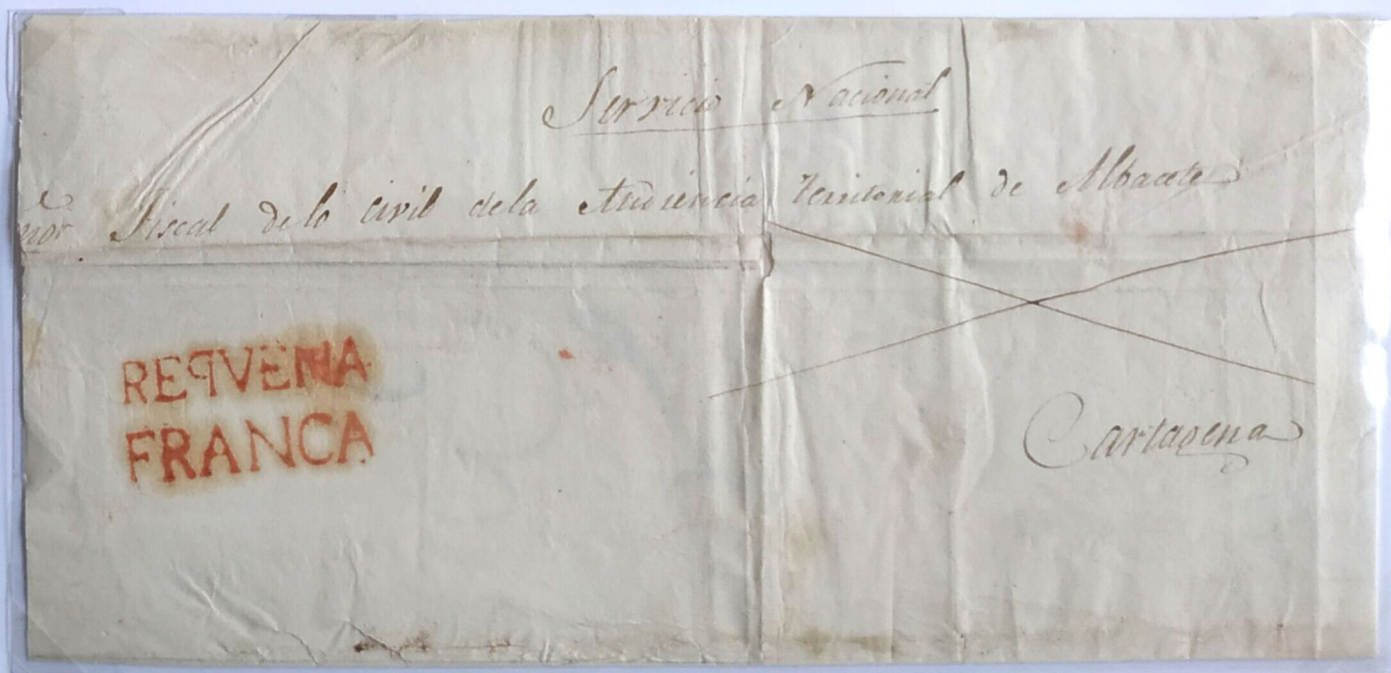 Servicio Nacional
nor Fiscal de lo Civil de la Audiencia Territorial de Albacete
REQVENA
FRANCA
Cartagena